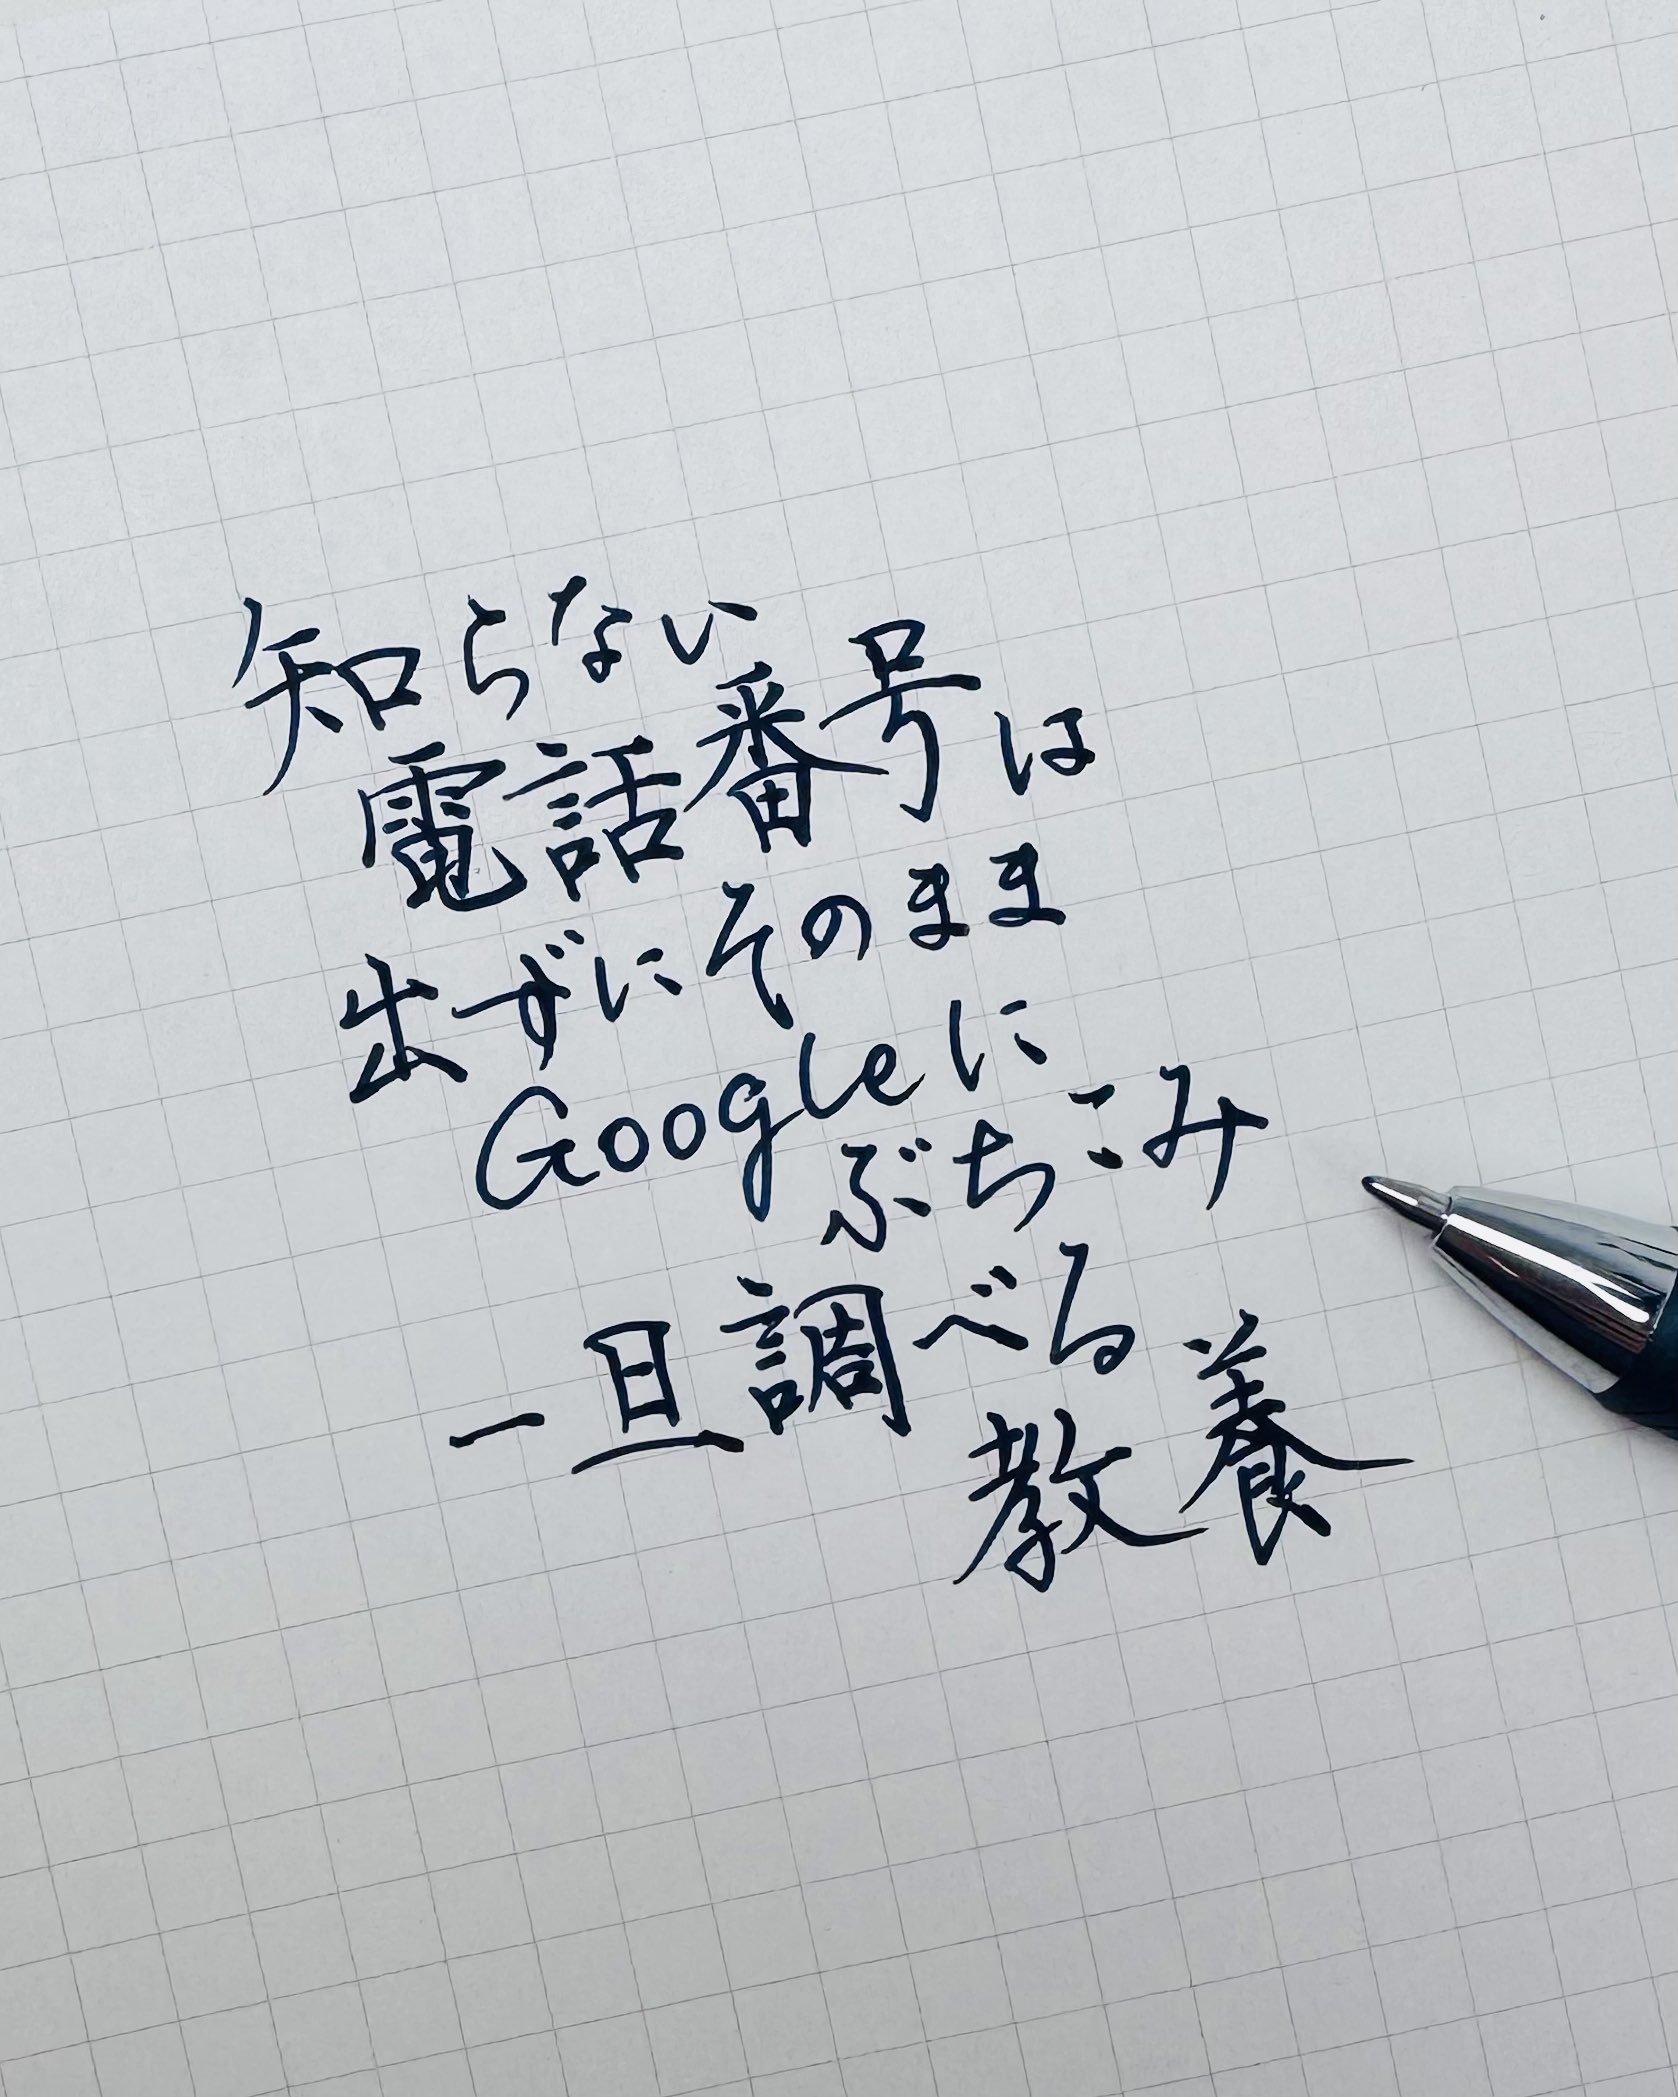 知らない
電話番号は
出ずにそのまま
Googleに
ぶちこみ
一旦調べる
教養